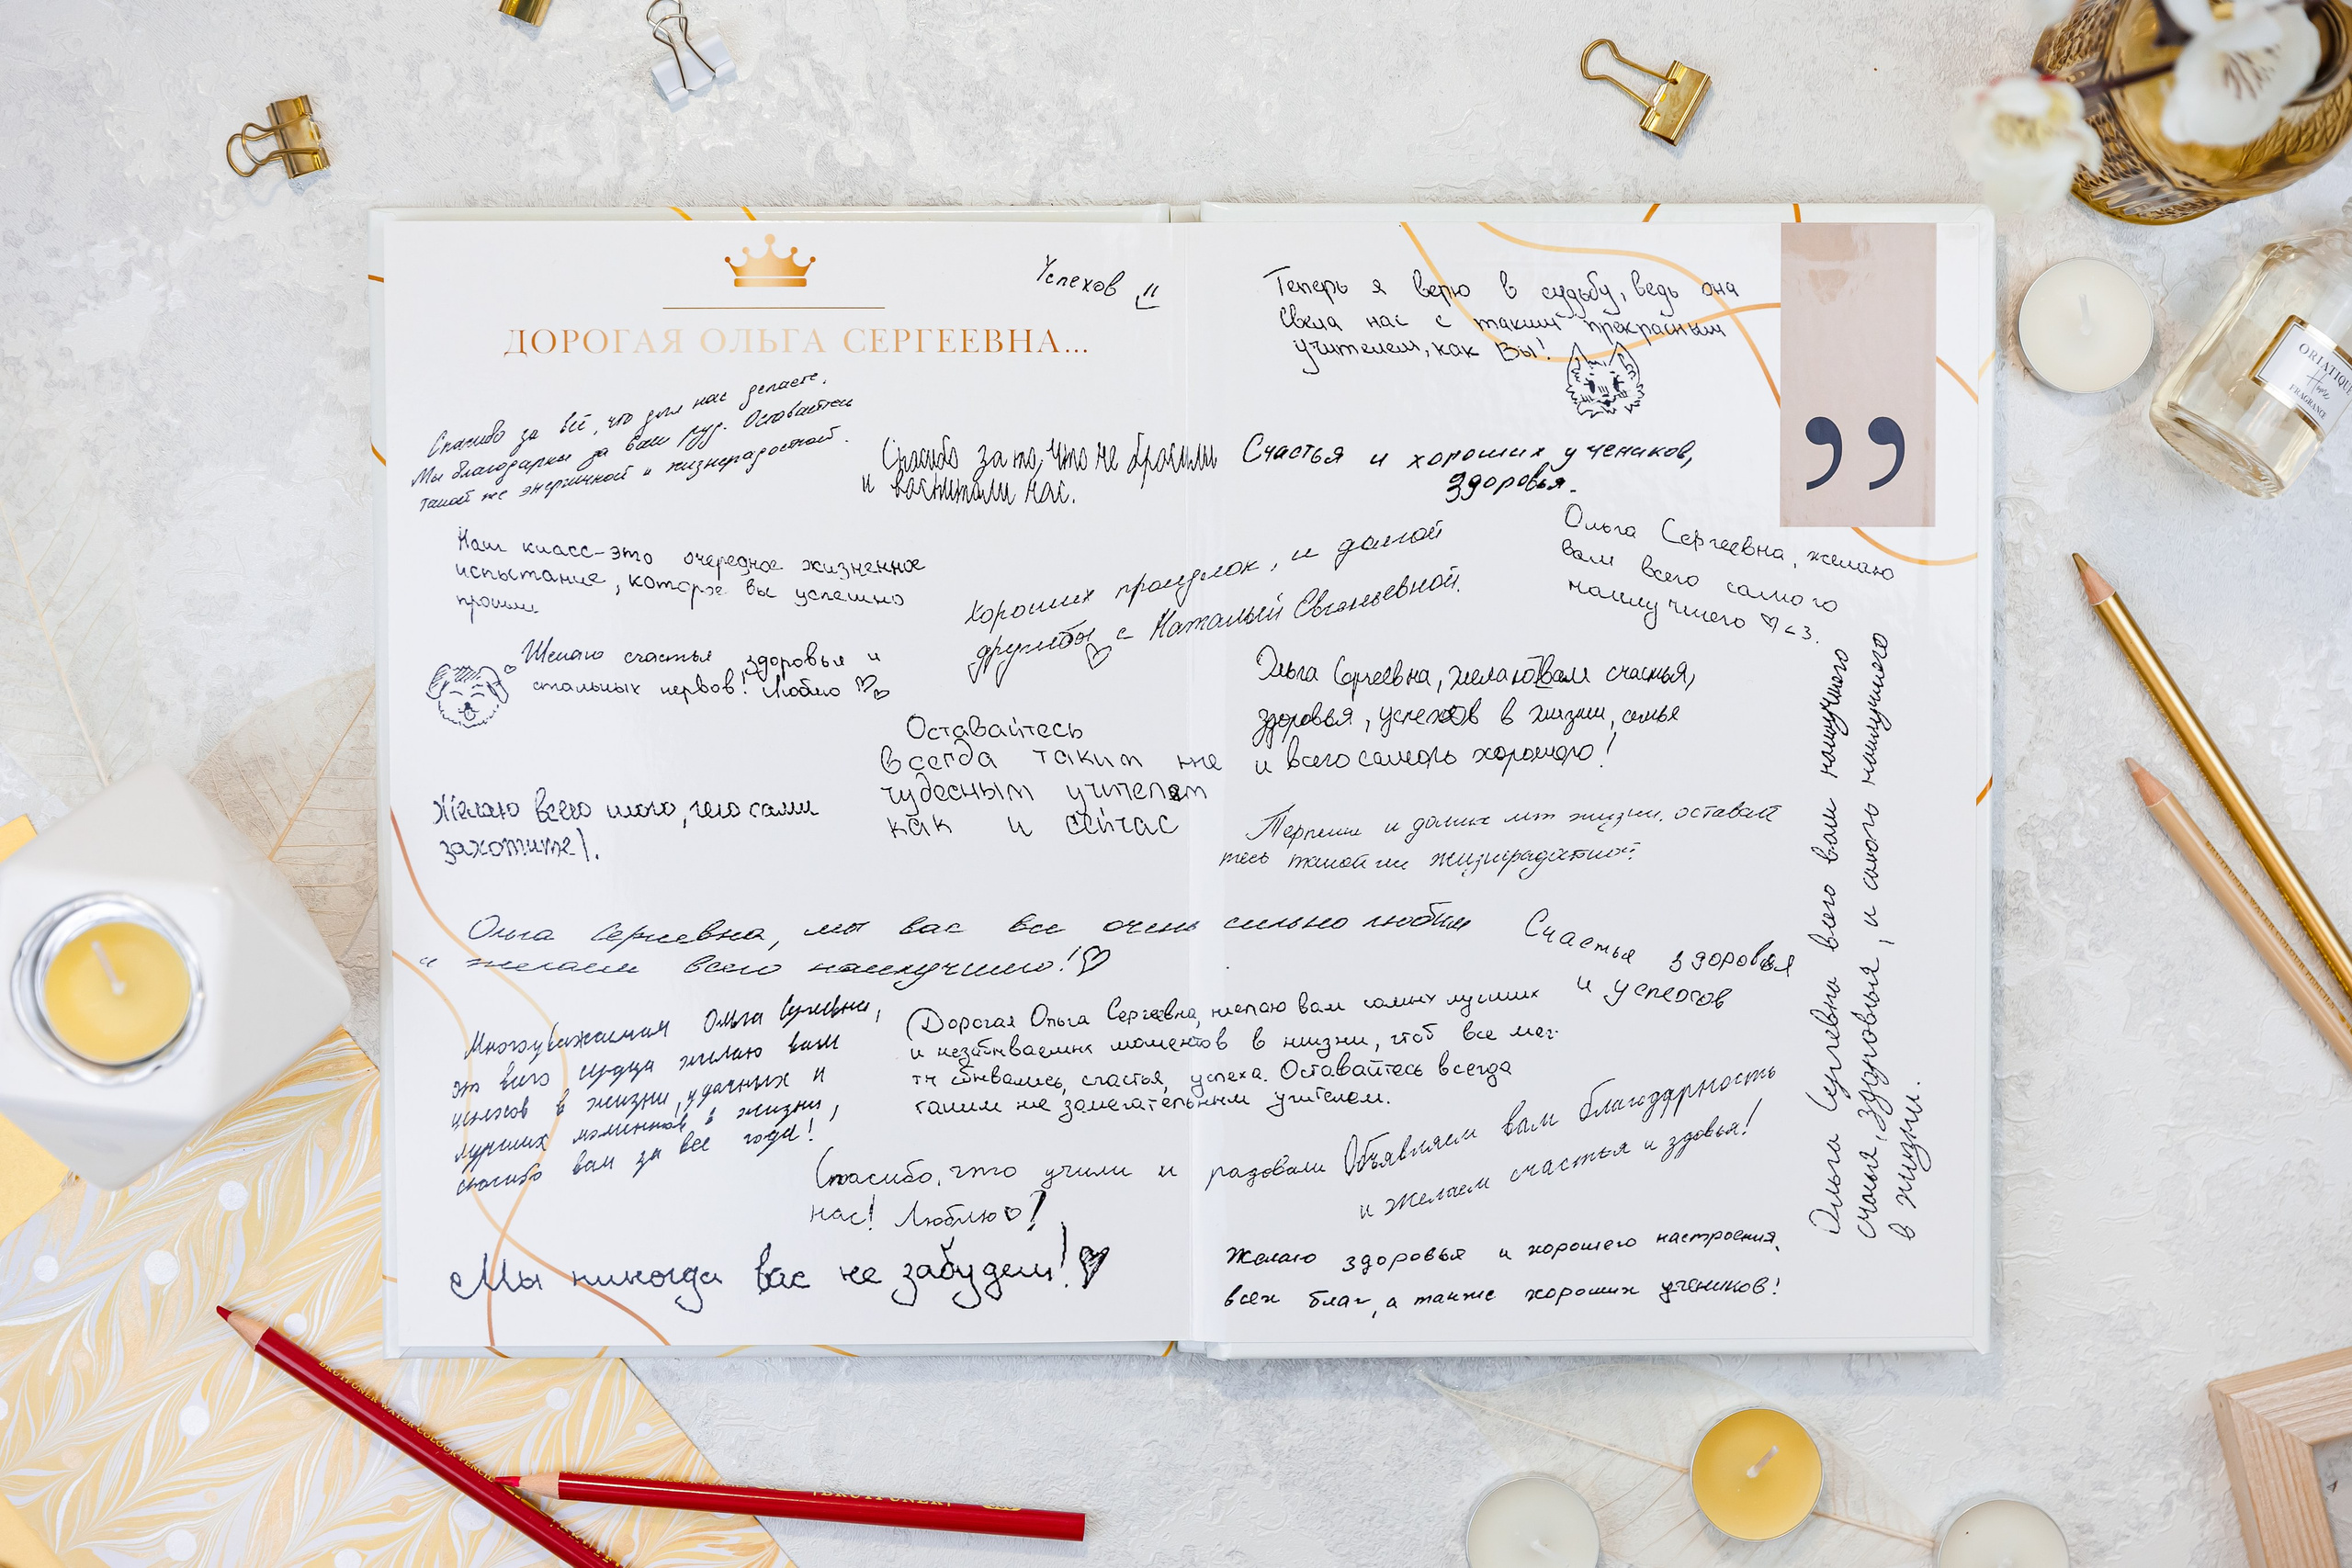 ДОРОГАЯ ОЛЬГА СЕРГЕЕВНА...
Успехов
Спасибо за всё, что для нас делаете.
Мы благодарны за ваш труд. Оставайтесь
такой же энергичной и жизнерадостной.
Спасибо за то, что не бросили
и воспитали нас.
Наш класс-это очередное жизненное
испытание, которое вы успешно
прошли
Желаю счастья здоровья и
стальных нервов! Люблю
Хороших прогулок, и долгой
дружбы с Натальей Евгеньевной.
Оставайтесь
всегда таким же
чудесным учителем
как и сейчас
Желаю всего того, чего сами
захотите).
Теперь я верю в судьбу, ведь она
свела нас с таким прекрасным
учителем, как Вы!
”
Счастья и хороших учеников,
здоровья.
Ольга Сергеевна, желаю
вам всего самого
наилучшего ♡<3.
Ольга Сергеевна, желаю Вам счастья,
здоровья, успехов в жизни, семье
и всего самого хорошего!
Терпения и долгих лет жизни. оставай
тесь такой же
Ольга Сергеевна, мы вас все очень сильно любим
и желаем всего наилучшего! ♡
Счастья здоровья
и успехов
Многоуважаемая Ольга Сергеевна,
от всего сердца желаю вам
успехов в жизни, удачных и
лучших моментов в жизни,
спасибо вам за все годы!
Дорогая Ольга Сергеевна, желаю вам самых лучших
и незабываемых моментов в жизни, чтоб все меч-
ты сбывались, счастья, успеха. Оставайтесь всегда
таким же замечательным учителем.
Спасибо, что учили и радовали
нас! Люблю♡!
Объявляем вам благодарность
и желаем счастья и здовья!
Мы никогда вас не забудем! ♡
Желаю здоровья и хорошего настроения,
всех благ, а также хороших учеников!
Ольга Сергеевна всего вам наилучшего
счастья, здоровья, и самого наилучшего
в жизни.
ORIATIQUE
Home
FRAGRANCE
BRUYNZEEL WATER COLOUR PENCIL